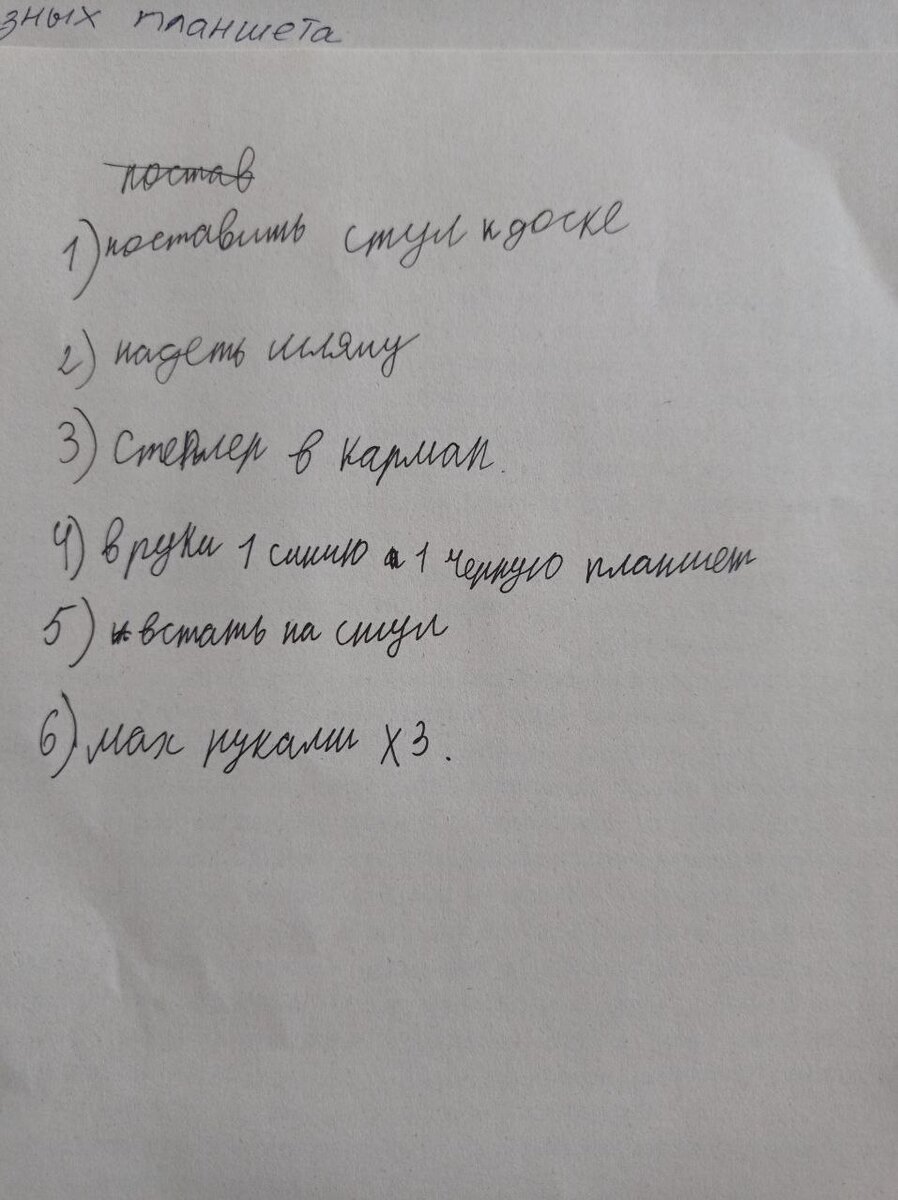 зных планшета
постав
1) поставить стул к доске
2) надеть шляпу
3) степлер в карман.
4) в руки 1 синию и 1 черную планшет
5) встать на стул
6) мах руками х3.